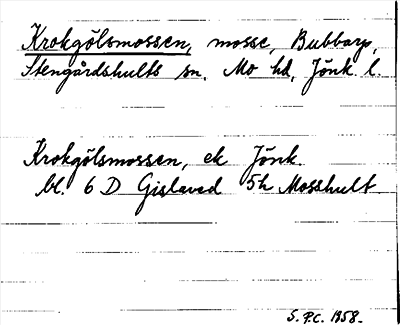 Krokgölsmossen, mosse, Bubbarp,
Stengårdshults sn, Mo hd, Jönk. l.
Krokgölsmossen, ek Jönk.
bl. 6 D Gislaved 5h Mosshult
S. P.C. 1958.